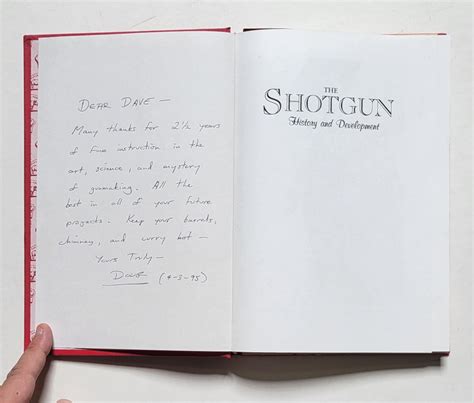 DEAR DAVE —
Many thanks for 2½ years
of fine instruction in the
art, science, and mystery
of gunmaking. All the
best in all of your future
projects. Keep your barrels,
chimney, and curry hot —
Yours Truly —
DOUR (4-3-95)
THE
SHOTGUN
History and Development